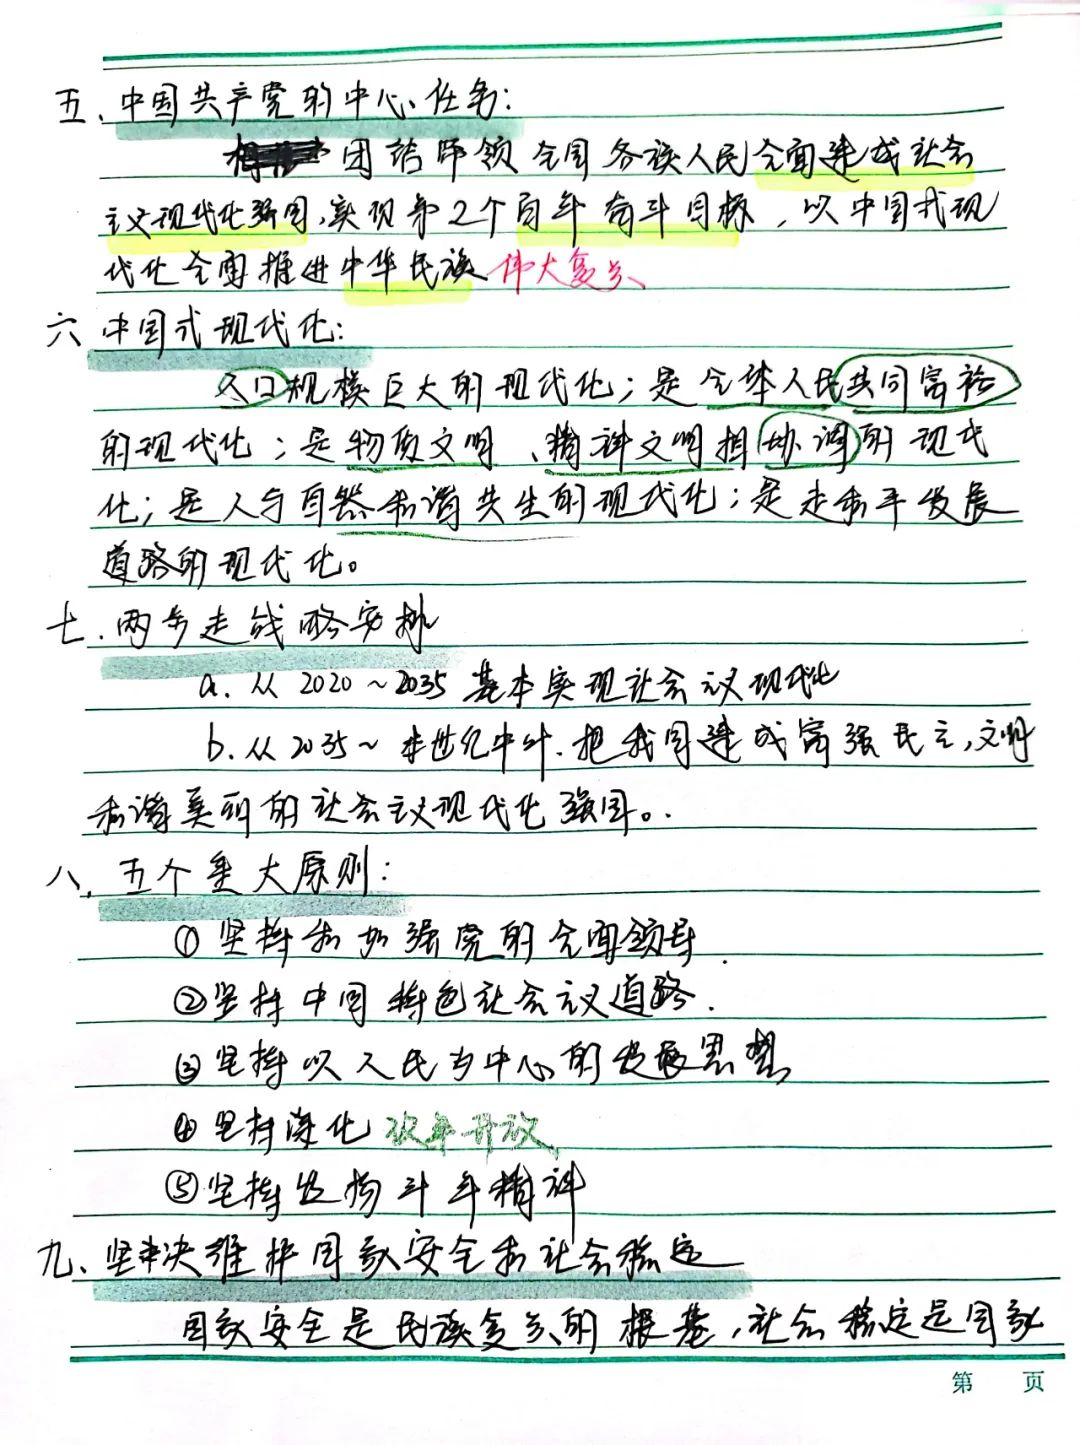 五、中国共产党的中心任务：
团结带领全国各族人民全面建成社会
主义现代化强国，实现第2个百年奋斗目标，以中国式现
代化全面推进中华民族伟大复兴
六 中国式现代化：
人口规模巨大的现代化；是全体人民共同富裕
的现代化；是物质文明、精神文明相协调的现代
化；是人与自然和谐共生的现代化；是走和平发展
道路的现代化。
七、两步走战略安排
a. 从2020～2035 基本实现社会主义现代化
b. 从2035～本世纪中叶.把我国建成富强民主,文明
和谐美丽的社会主义现代化强国。
八、五个重大原则：
①坚持和加强党的全面领导.
②坚持中国特色社会主义道路.
③坚持以人民为中心的发展思想
④坚持深化改革开放、
⑤坚持发扬斗争精神
九、坚决维护国家安全和社会稳定
国家安全是民族复兴的根基,社会稳定是国家
第 页